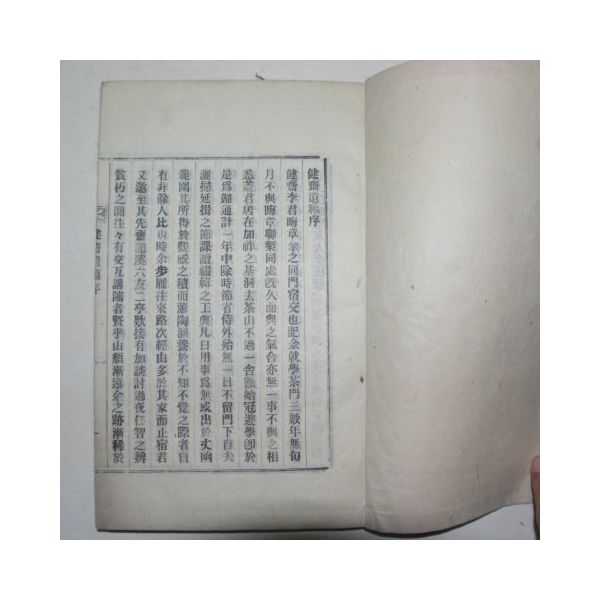 健齋遺稿序
健齋李君晦章余之同門宿交也記余就學茶門三數年無旬
月不與晦章聯槧同處旣久而與之氣合亦無一事不與之相
悉蓋君居在加祚之基洞去茶山不過一舍餘始冠遊學卽於
是爲歸通計一年中除時節省侍外殆無一日不留門下自夫
灑掃延揖之節課讀綴輯之工與凡日用事爲無或出於丈函
範圍其所得於觀感之積而薰陶涵養於不知不覺之際者自
有非餘人比也時余步屧往來路次經由多於其家而止宿君
又邀至其先齋龍溪六友二亭歡接有加談討過夜仁智之辨
貧朽之園往々有交互講隲者曁乎山頹漸遠余之跡漸稀於
健齋遺稿序